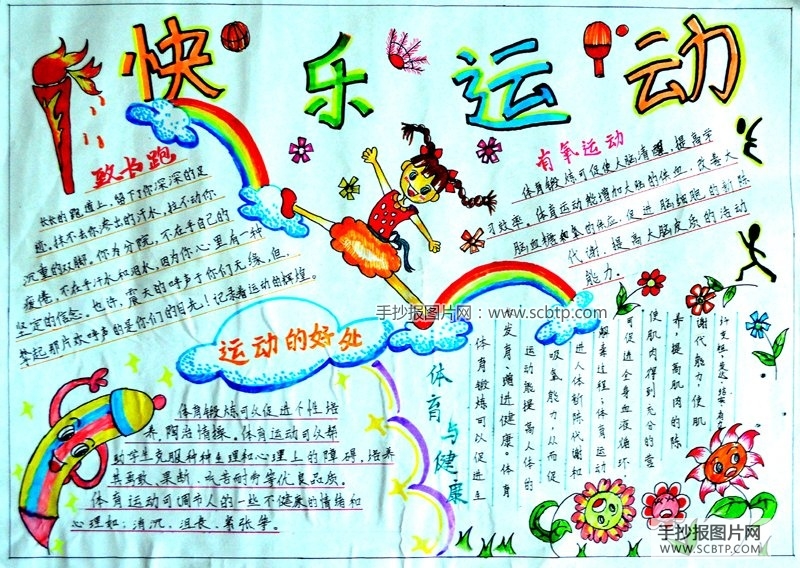 快乐运动
致长跑
长长的跑道上,留下你深深的足
迹。抹不去你渗出的汗水,拉不动你
沉重的双脚。你为分院,不在乎自己的
疲倦,不在乎汗水和泪水,因为你心里有一种
坚定的信念。也许,震天的呼声于你们无缘,但,
攀起那片欢呼声的是你们的目光!记录着运动的辉煌。
有氧运动
体育锻炼可促使人脑清醒、提高学
习效率。体育运动能增加大脑的供血、改善大
脑血糖和氧的供应,促进脑细胞的新陈
代谢、提高大脑皮质的活动
能力。
手抄报图片网:www.scbtp.com
运动的好处
体育锻炼可以促进个性培
养,陶冶情操。体育运动可以帮
助学生克服种种生理和心理上的障碍,培养
其勇敢、果断、吃苦耐劳等优良品质。
体育运动可调节人的一些不健康的情绪和
心理如:消沉、沮丧、紧张等。
体育与健康
体育锻炼可以促进生
发育、增进健康。体育
运动能提高人体的
吸氧能力,从而促
进人体新陈代谢和
解毒过程;体育运动
可促进全身血液循环
使肌肉得到充分的营
养,提高肌肉的陈
谢代能力,使肌
手抄报图片网
WWW.SCBTP.COM